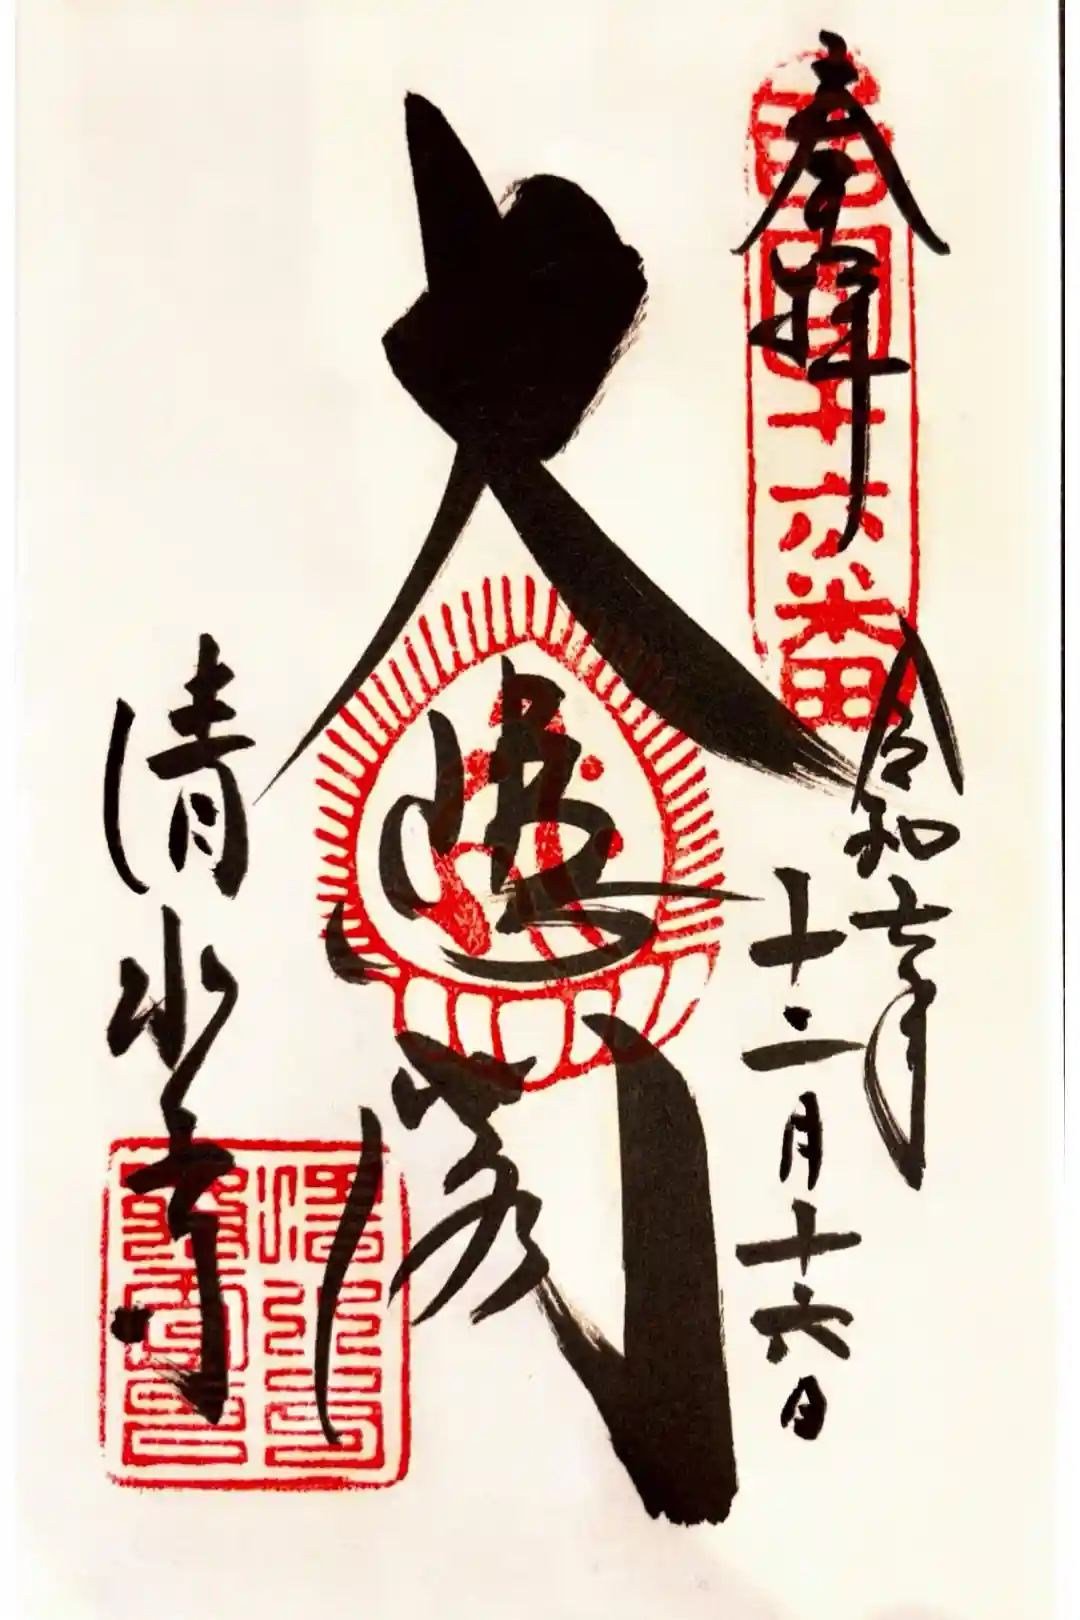 奉拝
西国十六番
令和七年
十二月十六日
大悲閣
清水寺